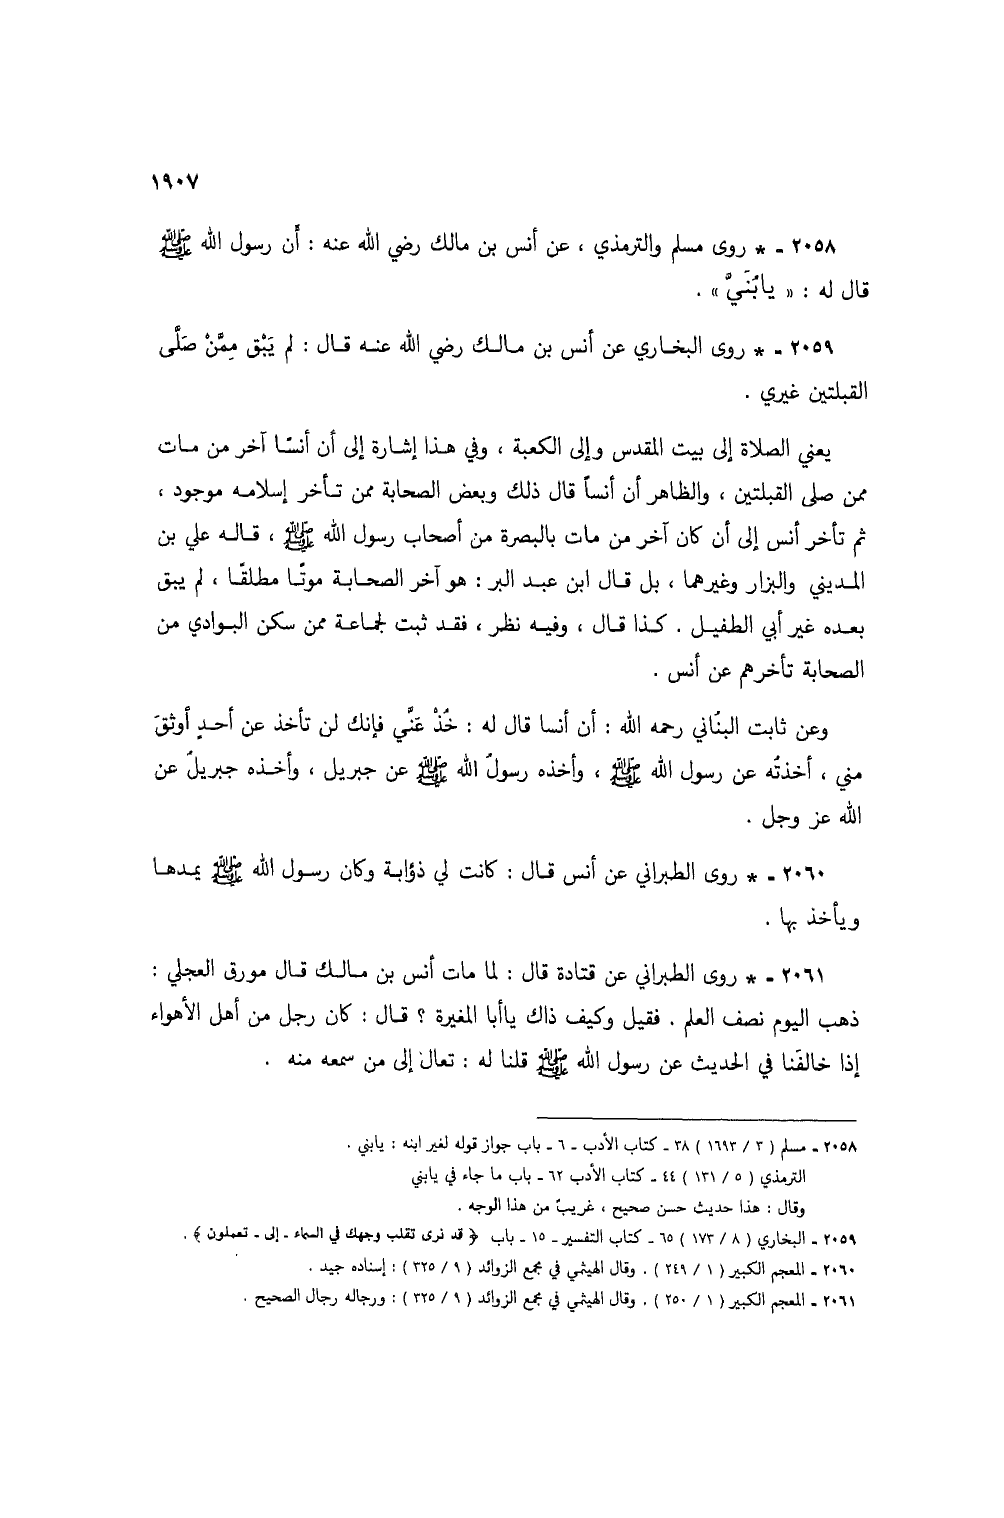 ١٩٠٧
٢٠٥٨ ـ * روى مسلم والترمذي ، عن أنس بن مالك رضي الله عنه : أَن رسول الله ﷺ
قال له : « يابُنَيَّ » .
٢٠٥٩ ـ * روى البخاري عن أنس بن مالك رضي الله عنه قال : لم يَبْق مِمَّنْ صَلَّى
القبلتين غيري .
يعني الصلاة إلى بيت المقدس وإلى الكعبة ، وفي هذا إشارة إلى أن أنسًا آخر من مات
ممن صلى القبلتين ، والظاهر أن أنساً قال ذلك وبعض الصحابة ممن تأخر إسلامه موجود ،
ثم تأخر أنس إلى أن كان آخر من مات بالبصرة من أصحاب رسول الله ﷺ ، قاله علي بن
المديني والبزار وغيرهما ، بل قال ابن عبد البر : هو آخر الصحابة موتًا مطلقًا ، لم يبق
بعده غير أبي الطفيل . كذا قال ، وفيه نظر ، فقد ثبت لجماعة ممن سكن البوادي من
الصحابة تأخرهم عن أنس .
وعن ثابت البنُاني رحمه الله : أن أنسا قال له : خُذْ عَنَّي فإنك لن تأخذ عن أحدٍ أوثقَ
مني ، أخذتُه عن رسول الله ﷺ ، وأخذه رسولُ الله ﷺ عن جبريل ، وأخذه جبريلُ عن
الله عز وجل .
٢٠٦٠ ـ * روى الطبراني عن أنس قال : كانت لي ذؤابة وكان رسول الله ﷺ يمدها
ويأخذ بها .
٢٠٦١ ـ * روى الطبراني عن قتادة قال : لما مات أنس بن مالك قال مورق العجلي :
ذهب اليوم نصف العلم . فقيل وكيف ذاك ياأبا المغيرة ؟ قال : كان رجل من أهل الأهواء
إذا خالفَنا في الحديث عن رسول الله ﷺ قلنا له : تعالَ إلى من سمعه منه .
٢٠٥٨ ـ مسلم ( ٣ / ١٦٩٣ ) ٣٨ ـ كتاب الأدب ـ ٦ ـ باب جواز قوله لغير ابنه : يابني .
الترمذي ( ٥ / ١٣١ ) ٤٤ ـ كتاب الأدب ٦٢ ـ باب ما جاء في يابني
وقال : هذا حديث حسن صحيح ، غريبٌ من هذا الوجه .
٢٠٥٩ ـ البخاري ( ٨ / ١٧٣ ) ٦٥ ـ كتاب التفسير ـ ١٥ ـ باب ﴿ قد نرى تقلب وجهك في السماء ـ إلى ـ تعملون ﴾ .
٢٠٦٠ ـ المعجم الكبير ( ١ / ٢٤٩ ) . وقال الهيثمي في مجمع الزوائد ( ٩ / ٣٢٥ ) : إسناده جيد .
٢٠٦١ ـ المعجم الكبير ( ١ / ٢٥٠ ) . وقال الهيثمي في مجمع الزوائد ( ٩ / ٣٢٥ ) : ورجاله رجال الصحيح .